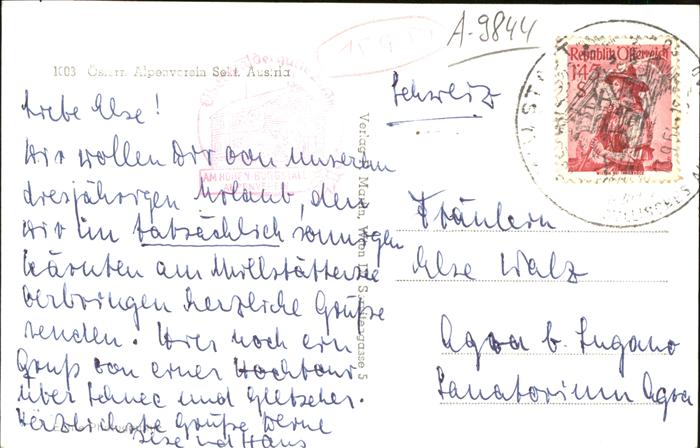 A-9844
1003 Österr. Alpenverein Sekt. Austria
Republik Österreich
1.45
S
Schweiz
Liebe Else!
Wir wollen Dir von unserem
diesjährigen Urlaub, den
wir im tatsächlich sonnigen
Kärnten am Millstättersee
verbringen herzliche Grüße
senden. Hier noch ein
Gruß von einer Hochtour
über Schnee und Gletscher.
Herzlichste Grüße
Liese und Hans
Fräulein
Else Walz
Agra b. Lugano
Sanatorium Agra
AM HOHEN BURGSTALL
Wien
gasse 5